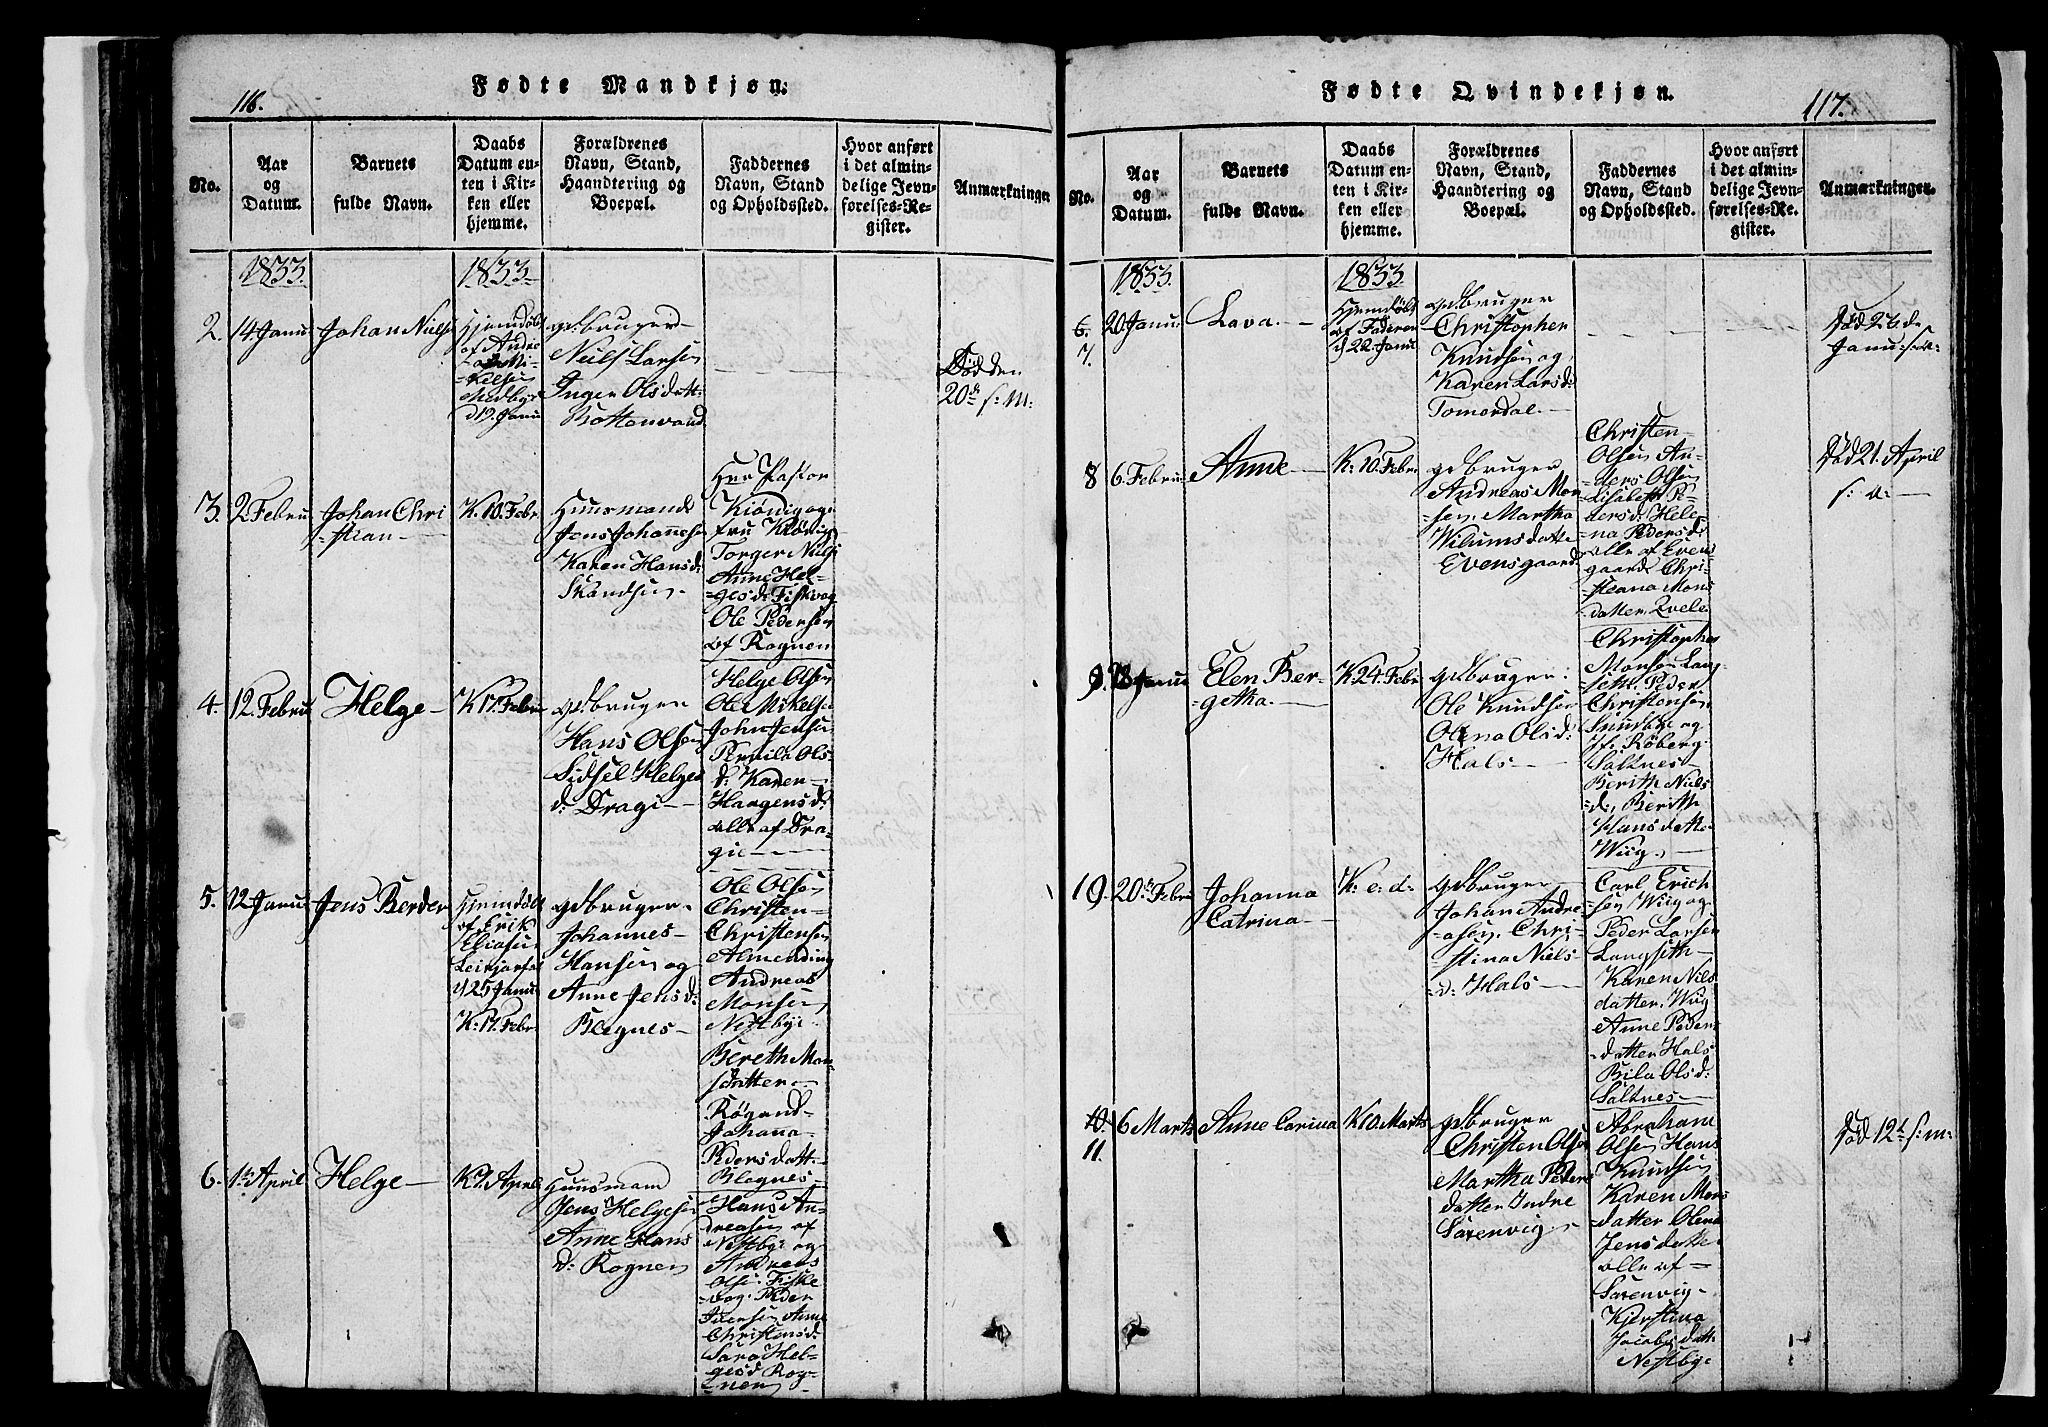 116.
Fødte Mandkjøn.
No.
Aar
og
Datum.
Barnets
fulde Navn.
Daabs
Datum en-
ten i Kir-
ken eller
hjemme.
Forældrenes
Navn, Stand,
Haandtering og
Boepæl.
Faddernes
Navn, Stand
og Opholdssted.
Hvor anført
i det almin-
delige Jevn-
førelses-Re-
gister.
Anmærkninger
1833.
1833
2.
14 Janu
Johan Niels
Hjemdøbt
af Andre
Medbye
d 19. Janu
gdbruger
Niels Larsen
Inger Olsdatt:
Bottenvand
Død den
20de s: M:
3.
2 Febru
Johan Chri
=stian
K. 10. Febr.
Huusmand
Jens Johannesen
Karen Hansd:
Skandsen
Her Pastor
Kiönig og
fru Kiönig
Torger Niels
Anne Hel-
=gesd: Fiskvog
Ole Pedersen
af Rognen
4.
12. Febru
Helge
K 17. Febru
gdbruger
Hans Olsen
Sidsel Helges
d: Dragi
Helge Olsen
Ole Mikelse
John Jensen
Pernila Ols
d: Karen
Haagensd:
alle af Dra-
gie
5.
12 Janu
Jens Berder
Hjemdøbt
af Erik
Eliasen
Leivjorfal
d 25 Janu
K: 17. Febr.
gdbruger
Johannes
Hansen og
Anne Jensd:
Blegnes
Ole Olsen
Christen
Christensen
Almending
Andreas
Monsen
Nestbye
Bereth Mon
sdatter
Rögnand
Johana
Pedersdatt.
Blegnes
6.
1te April
Helge
K 7. April
Huusmand
Jens Helgesen
Anne Hans
d: Rognen
Hans An-
dreasen af
Nestbye og
Andreas
Olsen Fiske
=vog. Peder
Iversen Anne
Christensd:
Sara Hel-
gesd Rog-
=nen
117.
Fødte Qvindekjøn.
No.
Aar
og
Datum.
Barnets
fulde Navn.
Daabs
Datum en-
ten i Kir-
ken eller
hjemme.
Forældrenes
Navn, Stand,
Haandtering og
Boepæl.
Faddernes
Navn, Stand
og Opholdssted.
Hvor anført
i det almin-
delige Jevn-
førelses-Re-
gister.
Anmærkninger.
1833.
1833
6
7.
20 Janu
Lava.
Hjemdöbt
af Faderen
d 22. Janu
gdbruger
Christopher
Knudsen og
Karen Larsd:
Tomerdal
Död 26 de
Janu: s: a:
8
6. Febru
Anne
K: 10. Febr.
gdbruger
Andreas Mon
=sen, Martha
Wilumsdatte
Evensgaard
Christen
Olsen An-
ders Olsen
Lisabeth Pe-
dersd: Hele-
na Pedersd:
alle af Evens
gaard. Chri-
steana Mons
datter. Qvele
Död 21. April
s: a:
9.
Janu
Elen Ber-
=getha.
K. 24. Febr
gdbruger:
Ole Knudsen
Olena Olsd:
Hals
Christopher
Monsen Lang
=seth. Peder
Christensen
Sundbye og
Röberg:
Saltnes
Berith Niels
=d., Berith
Hansdatte
Wiig.
19.
20de Febr
Johanna
Catrina
K: e: d:
gdbruger
Johan Andre
=asen. Chri-
=stina Niels-
=d: Hals
Carl Erich
=sen Wiig og
Peder Larsen
Langseth
Karen Nils
datter. Wiig
Anne Peder-
=datter Hals
Bila Olsd:
Saltnes
10.
11.
6 Marts
Anne Carina
K10. Marts
gdbruger
Christen Olsen
Martha Peders
datter Indre
Sarenvig
Abraham
Olsen Hans
Knudsen
Karen Mons
=datter Olena
Jensdatte
alle af
Sarenvig
Kjerstina
Jacobsdatt
Nestbye
Död 12te s: m: